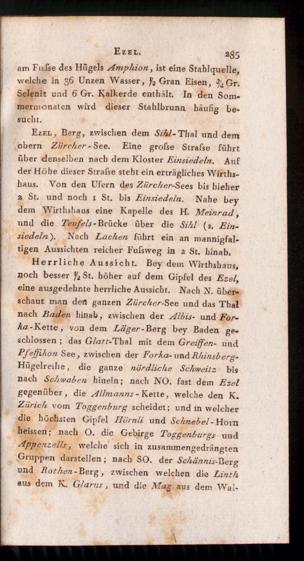 EZEL. 285
am Fuſse des Hügels Amphion, ist eine Stahlquelle,
welche in 36 Unzen Wasser, ½ Gran Eisen, ¾ Gr.
Selenit und 6 Gr. Kalkerde enthält. In den Som-
mermonaten wird dieser Stahlbrunn häufig be-
sucht.
EZEL, Berg, zwischen dem Sihl-Thal und dem
obern Zürcher-See. Eine groſse Straſse führt
über denselben nach dem Kloster Einsiedeln. Auf
der Höhe dieser Straſse steht ein erträgliches Wirths-
haus. Von den Ufern des Zürcher-Sees bis hieher
2 St. und noch 1 St. bis Einsiedeln. Nahe bey
dem Wirthshaus eine Kapelle des H. Meinrad,
und die Teufels-Brücke über die Sihl (s. Ein-
siedeln). Nach Lachen führt ein an mannigfal-
tigen Aussichten reicher Fuſsweg in 2 St. hinab.
Herrliche Aussicht. Bey dem Wirthshaus,
noch besser ¼ St. höher auf dem Gipfel des Ezel,
eine ausgedehnte herrliche Aussicht. Nach N. über-
schaut man den ganzen Zürcher-See und das Thal
nach Baden hinab, zwischen der Albis- und For-
ka-Kette, von dem Läger-Berg bey Baden ge-
schlossen; das Glatt-Thal mit dem Greiffen- und
Pfeffikon See, zwischen der Forka- und Rhinsberg-
Hügelreihe, die ganze nördliche Schweitz bis
nach Schwaben hinein; nach NO. fast dem Ezel
gegenüber, die Allmanns-Kette, welche den K.
Zürich vom Toggenburg scheidet; und in welcher
die höchsten Gipfel Hörnli und Schnebel-Horn
heissen; nach O. die Gebirge Toggenburgs und
Appenzells, welche sich in zusammengedrängten
Gruppen darstellen; nach SO. der Schännis-Berg
und Rothen-Berg, zwischen welchen die Linth
aus dem K. Glarus, und die Mag aus dem Wal-